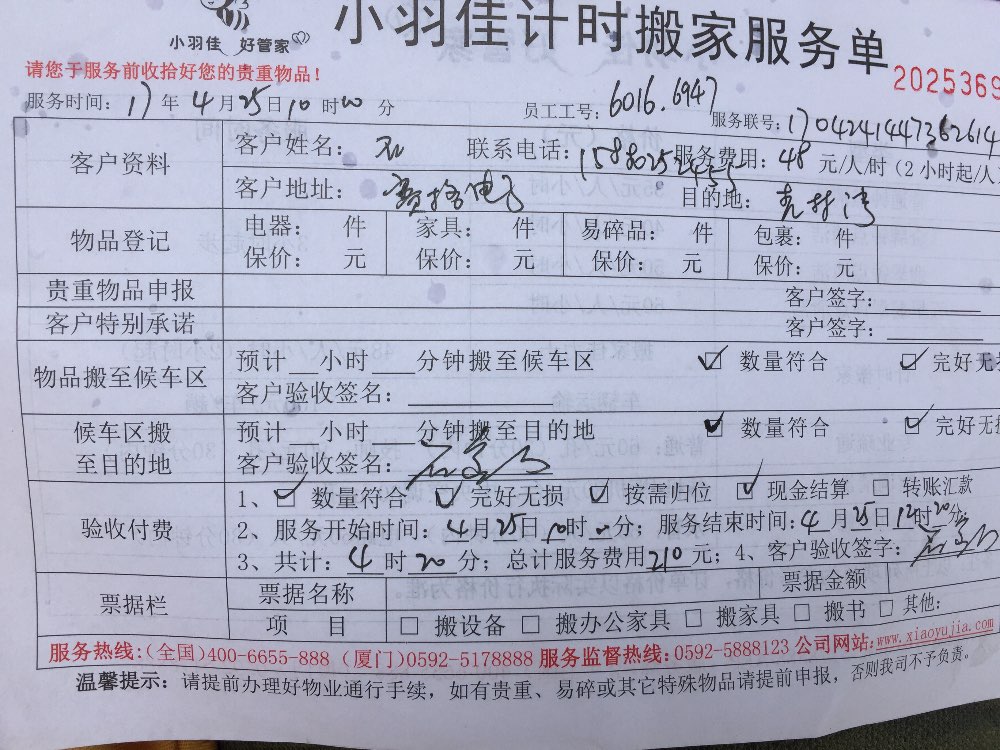 小羽佳 好管家
小羽佳计时搬家服务单
请您于服务前收拾好您的贵重物品！
2025369
服务时间：17年4月25日10时00分 员工工号：6016.6947 服务联号：1704241447362614
客户资料 客户姓名： 联系电话： 服务费用：48元/人/时（2小时起/人
客户地址：赛格电子 目的地：
物品登记 电器： 件 家具： 件 易碎品： 件 包裹： 件
保价： 元 保价： 元 保价： 元 保价： 元
贵重物品申报 客户签字：
客户特别承诺 客户签字：
物品搬至候车区 预计__小时___分钟搬至候车区 ☑ 数量符合 ☑ 完好无损
客户验收签名：
候车区搬至目的地 预计__小时___分钟搬至目的地 ☑ 数量符合 ☑ 完好无损
客户验收签名：
验收付费 1、☑ 数量符合 ☑ 完好无损 ☑ 按需归位 ☑ 现金结算 □ 转账汇款
2、服务开始时间：4月25日10时00分；服务结束时间：4月25日12时20分；
3、共计：4时20分；总计服务费用210元；4、客户验收签字：
票据栏 票据名称 票据金额
项 目 □ 搬设备 □ 搬办公家具 □ 搬家具 □ 搬书 □ 其他：
服务热线：(全国)400-6655-888 (厦门)0592-5178888 服务监督热线：0592-5888123 公司网站：www.xiaoyujia.com
温馨提示：请提前办理好物业通行手续，如有贵重、易碎或其它特殊物品请提前申报，否则我司不予负责。